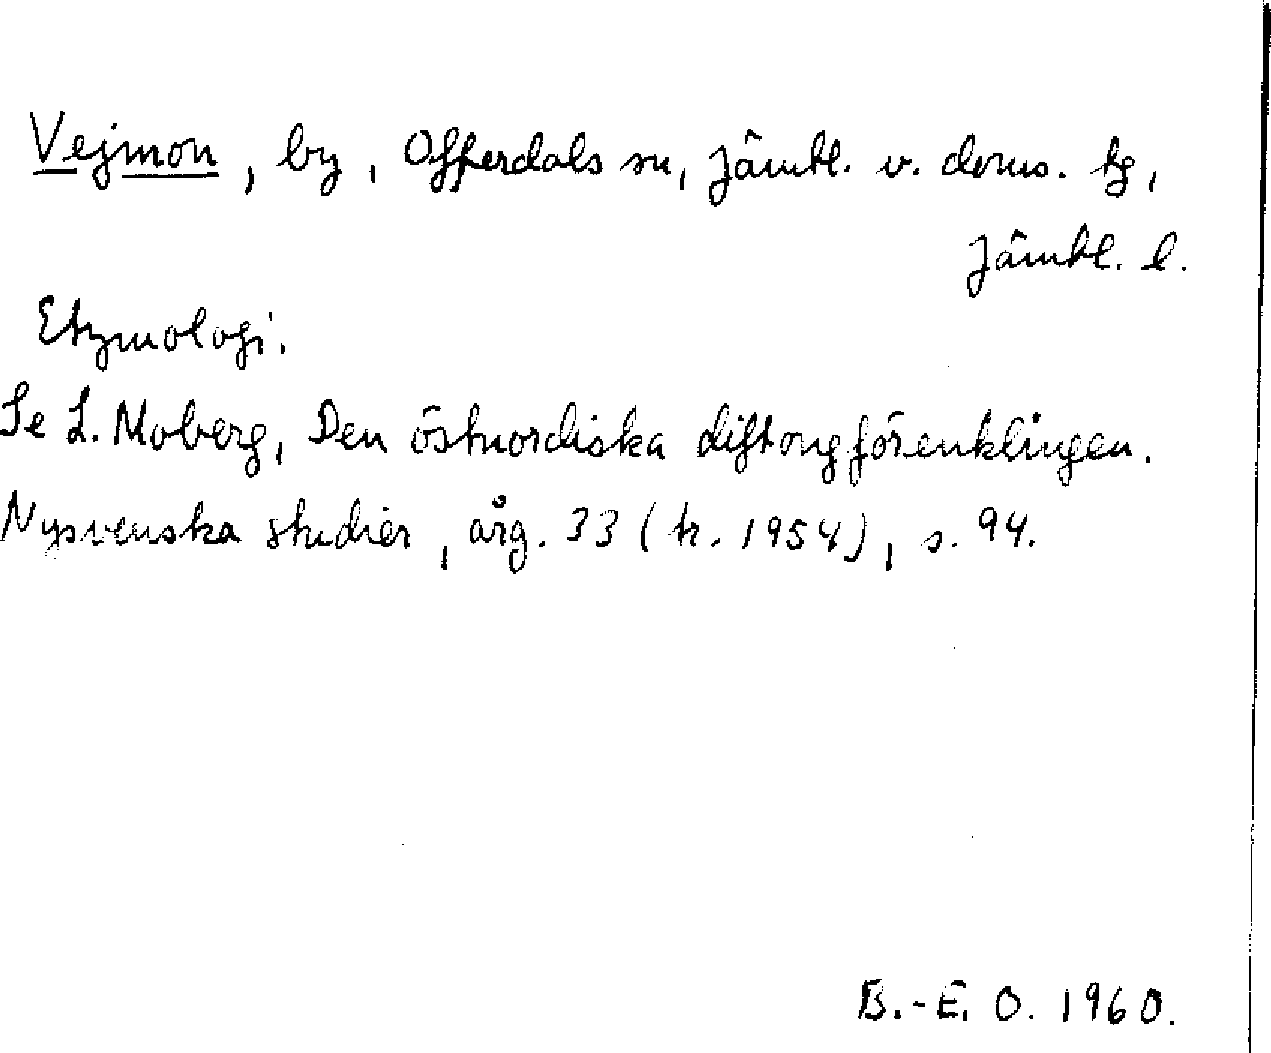 Vejmon, by, Offerdals sn, Jämtl. v. doms. tg,
Jämtl. l.
Etymologi.
Se L. Moberg, Den östnordiska diftongförenklingen.
Nysvenska studier, årg. 33 (tr. 1954), s. 94.
B.-E. O. 1960.